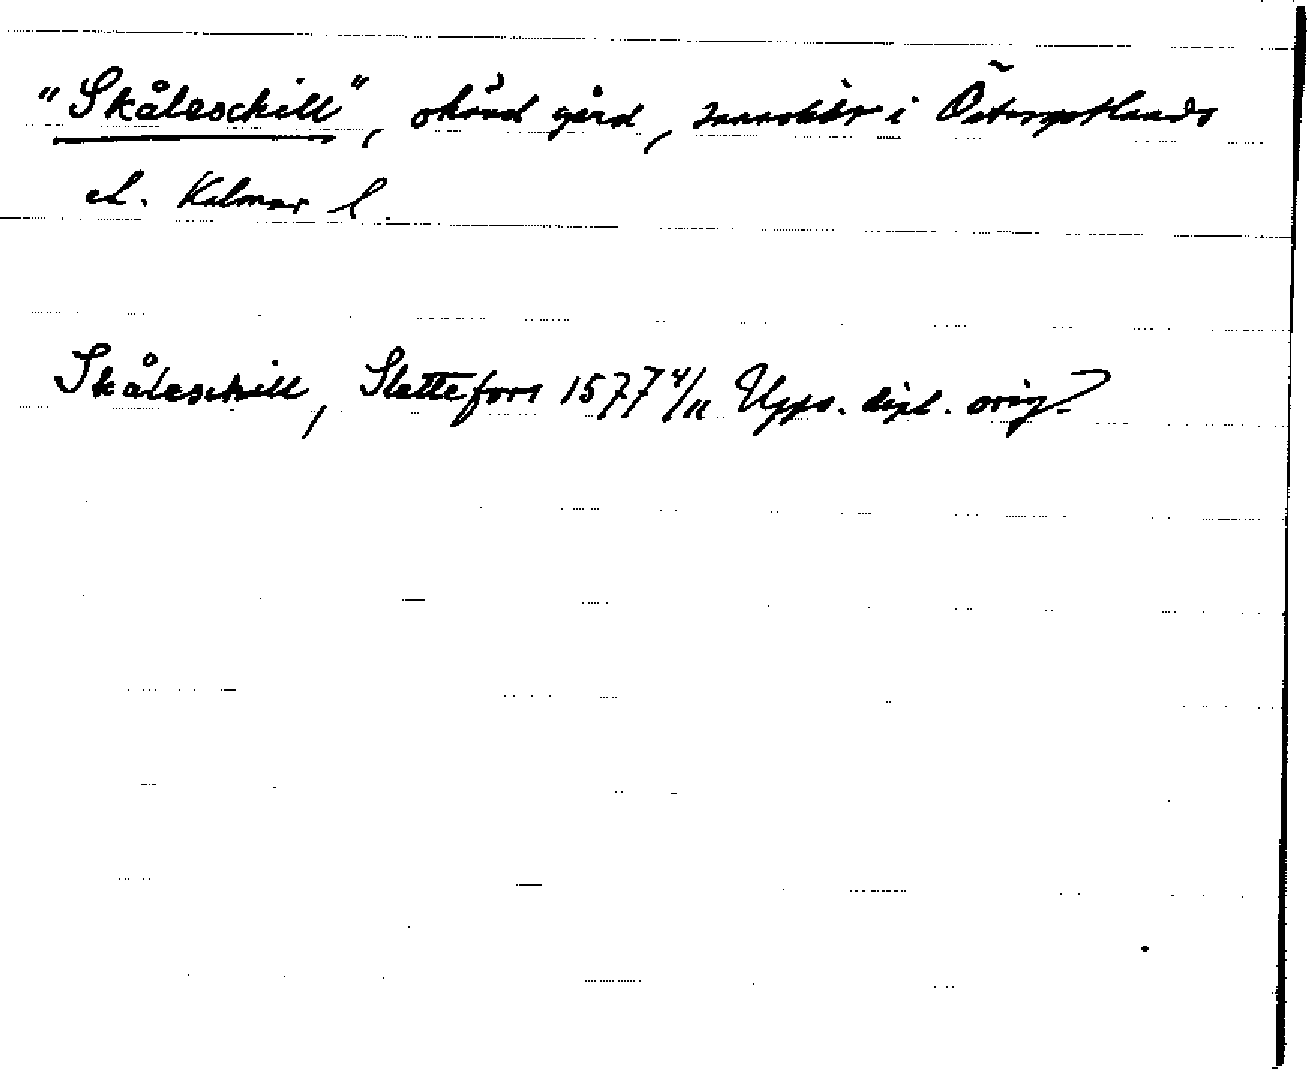 "Skåleschill", okänd gård, sannolikt i Östergötlands
el. Kalmar l.
Skåleschill, Slettefors 1577 4/11 Upps. dipl. orig.